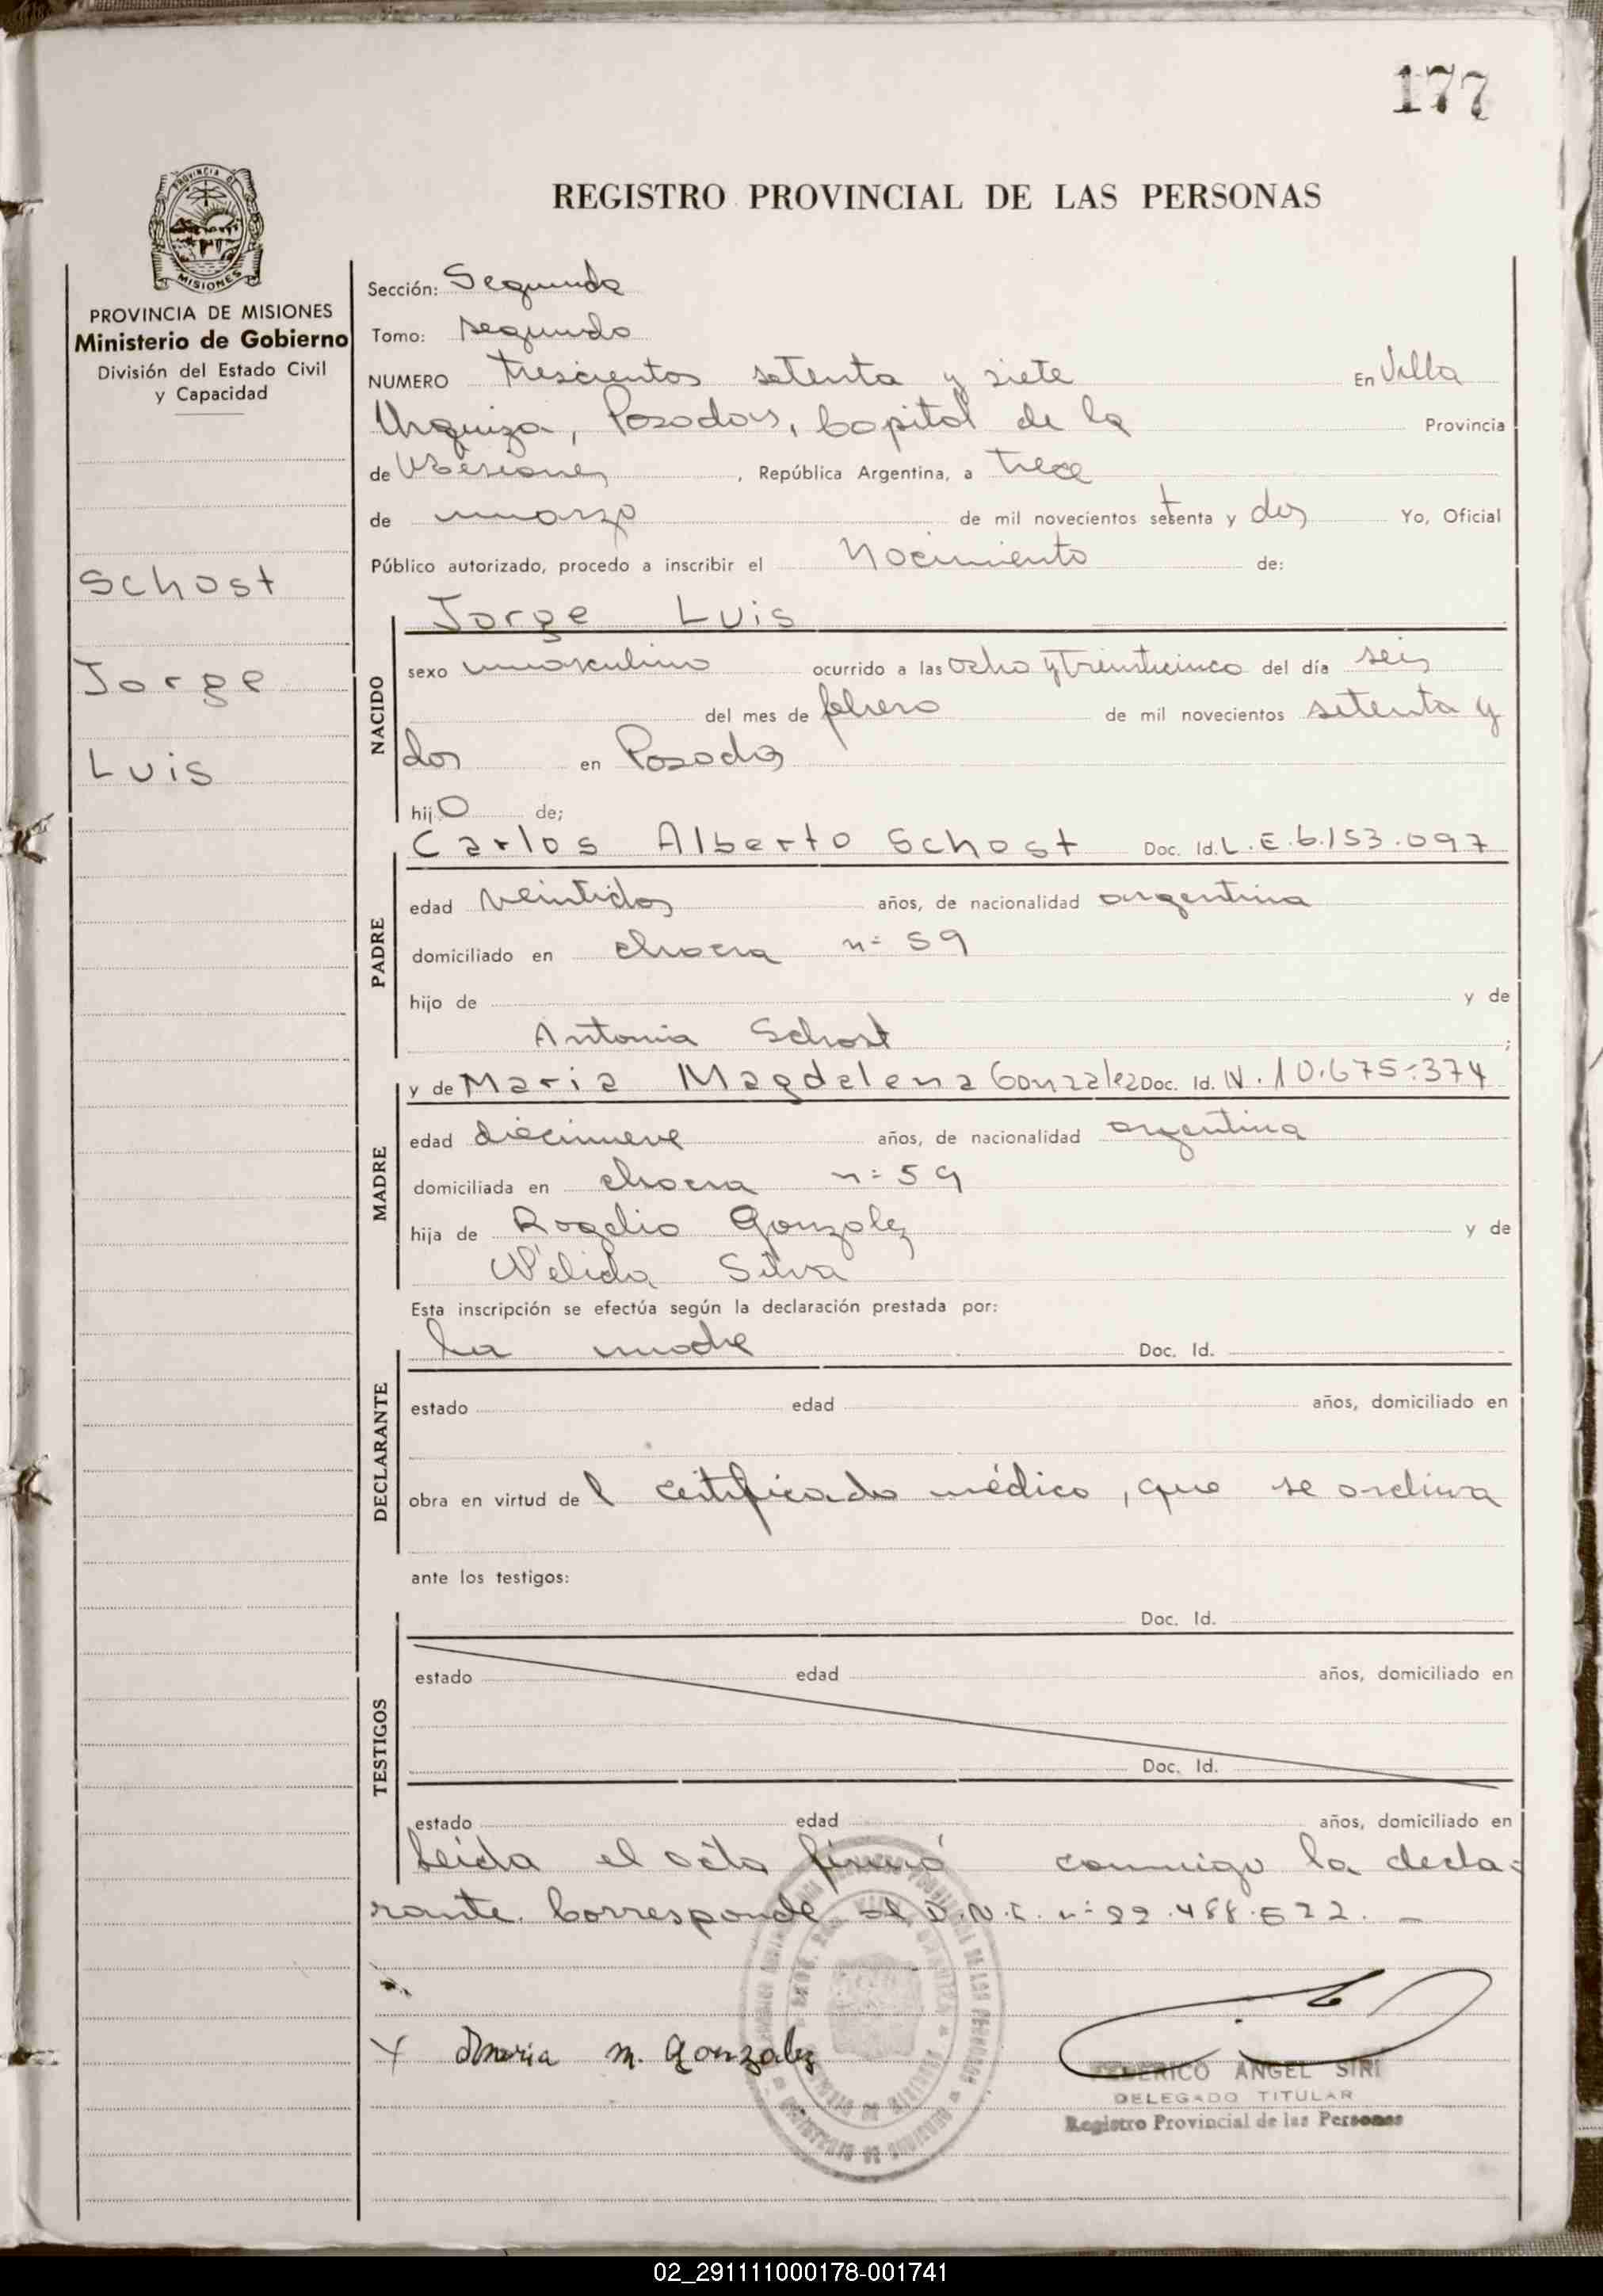 177
PROVINCIA DE
MISIONES
REGISTRO PROVINCIAL DE LAS PERSONAS
PROVINCIA DE MISIONES
Ministerio de Gobierno
División del Estado Civil
y Capacidad
Schost
Jorge
Luis
Sección: Segunda
Tomo: segundo
NUMERO trescientos setenta y siete En Villa
Urquiza, Posadas, Capital de la Provincia
de Misiones, República Argentina, a trece
de marzo de mil novecientos setenta y dos Yo, Oficial
Público autorizado, procedo a inscribir el Nacimiento de:
NACIDO
Jorge Luis
sexo masculino ocurrido a las ocho y treinticinco del día seis
del mes de febrero de mil novecientos setenta y
dos en Posadas
hijo de;
PADRE
Carlos Alberto Schost Doc. Id. L.E.6.153.097
edad veintidos años, de nacionalidad argentina
domiciliado en chacra n= 59
hijo de y de
Antonia Schost ;
MADRE
y de Maria Magdelena Gonzalez Doc. Id. N. 10.675.374
edad diecinueve años, de nacionalidad argentina
domiciliada en chacra n= 59
hija de Rogelio Gonzalez y de
Nélida Silva
Esta inscripción se efectúa según la declaración prestada por:
DECLARANTE
La madre Doc. Id.
estado edad años, domiciliado en
obra en virtud del certificado médico, que se archiva
ante los testigos:
TESTIGOS
Doc. Id.
estado edad años, domiciliado en
Doc. Id.
estado edad años, domiciliado en
Leída el acta firmó conmigo la decla-
rante. Corresponde al D.N.I. n= 22.488.522. —
X Maria M. Gonzalez
FEDERICO ANGEL SIRI
DELEGADO TITULAR
Registro Provincial de las Personas
02_291111000178-001741